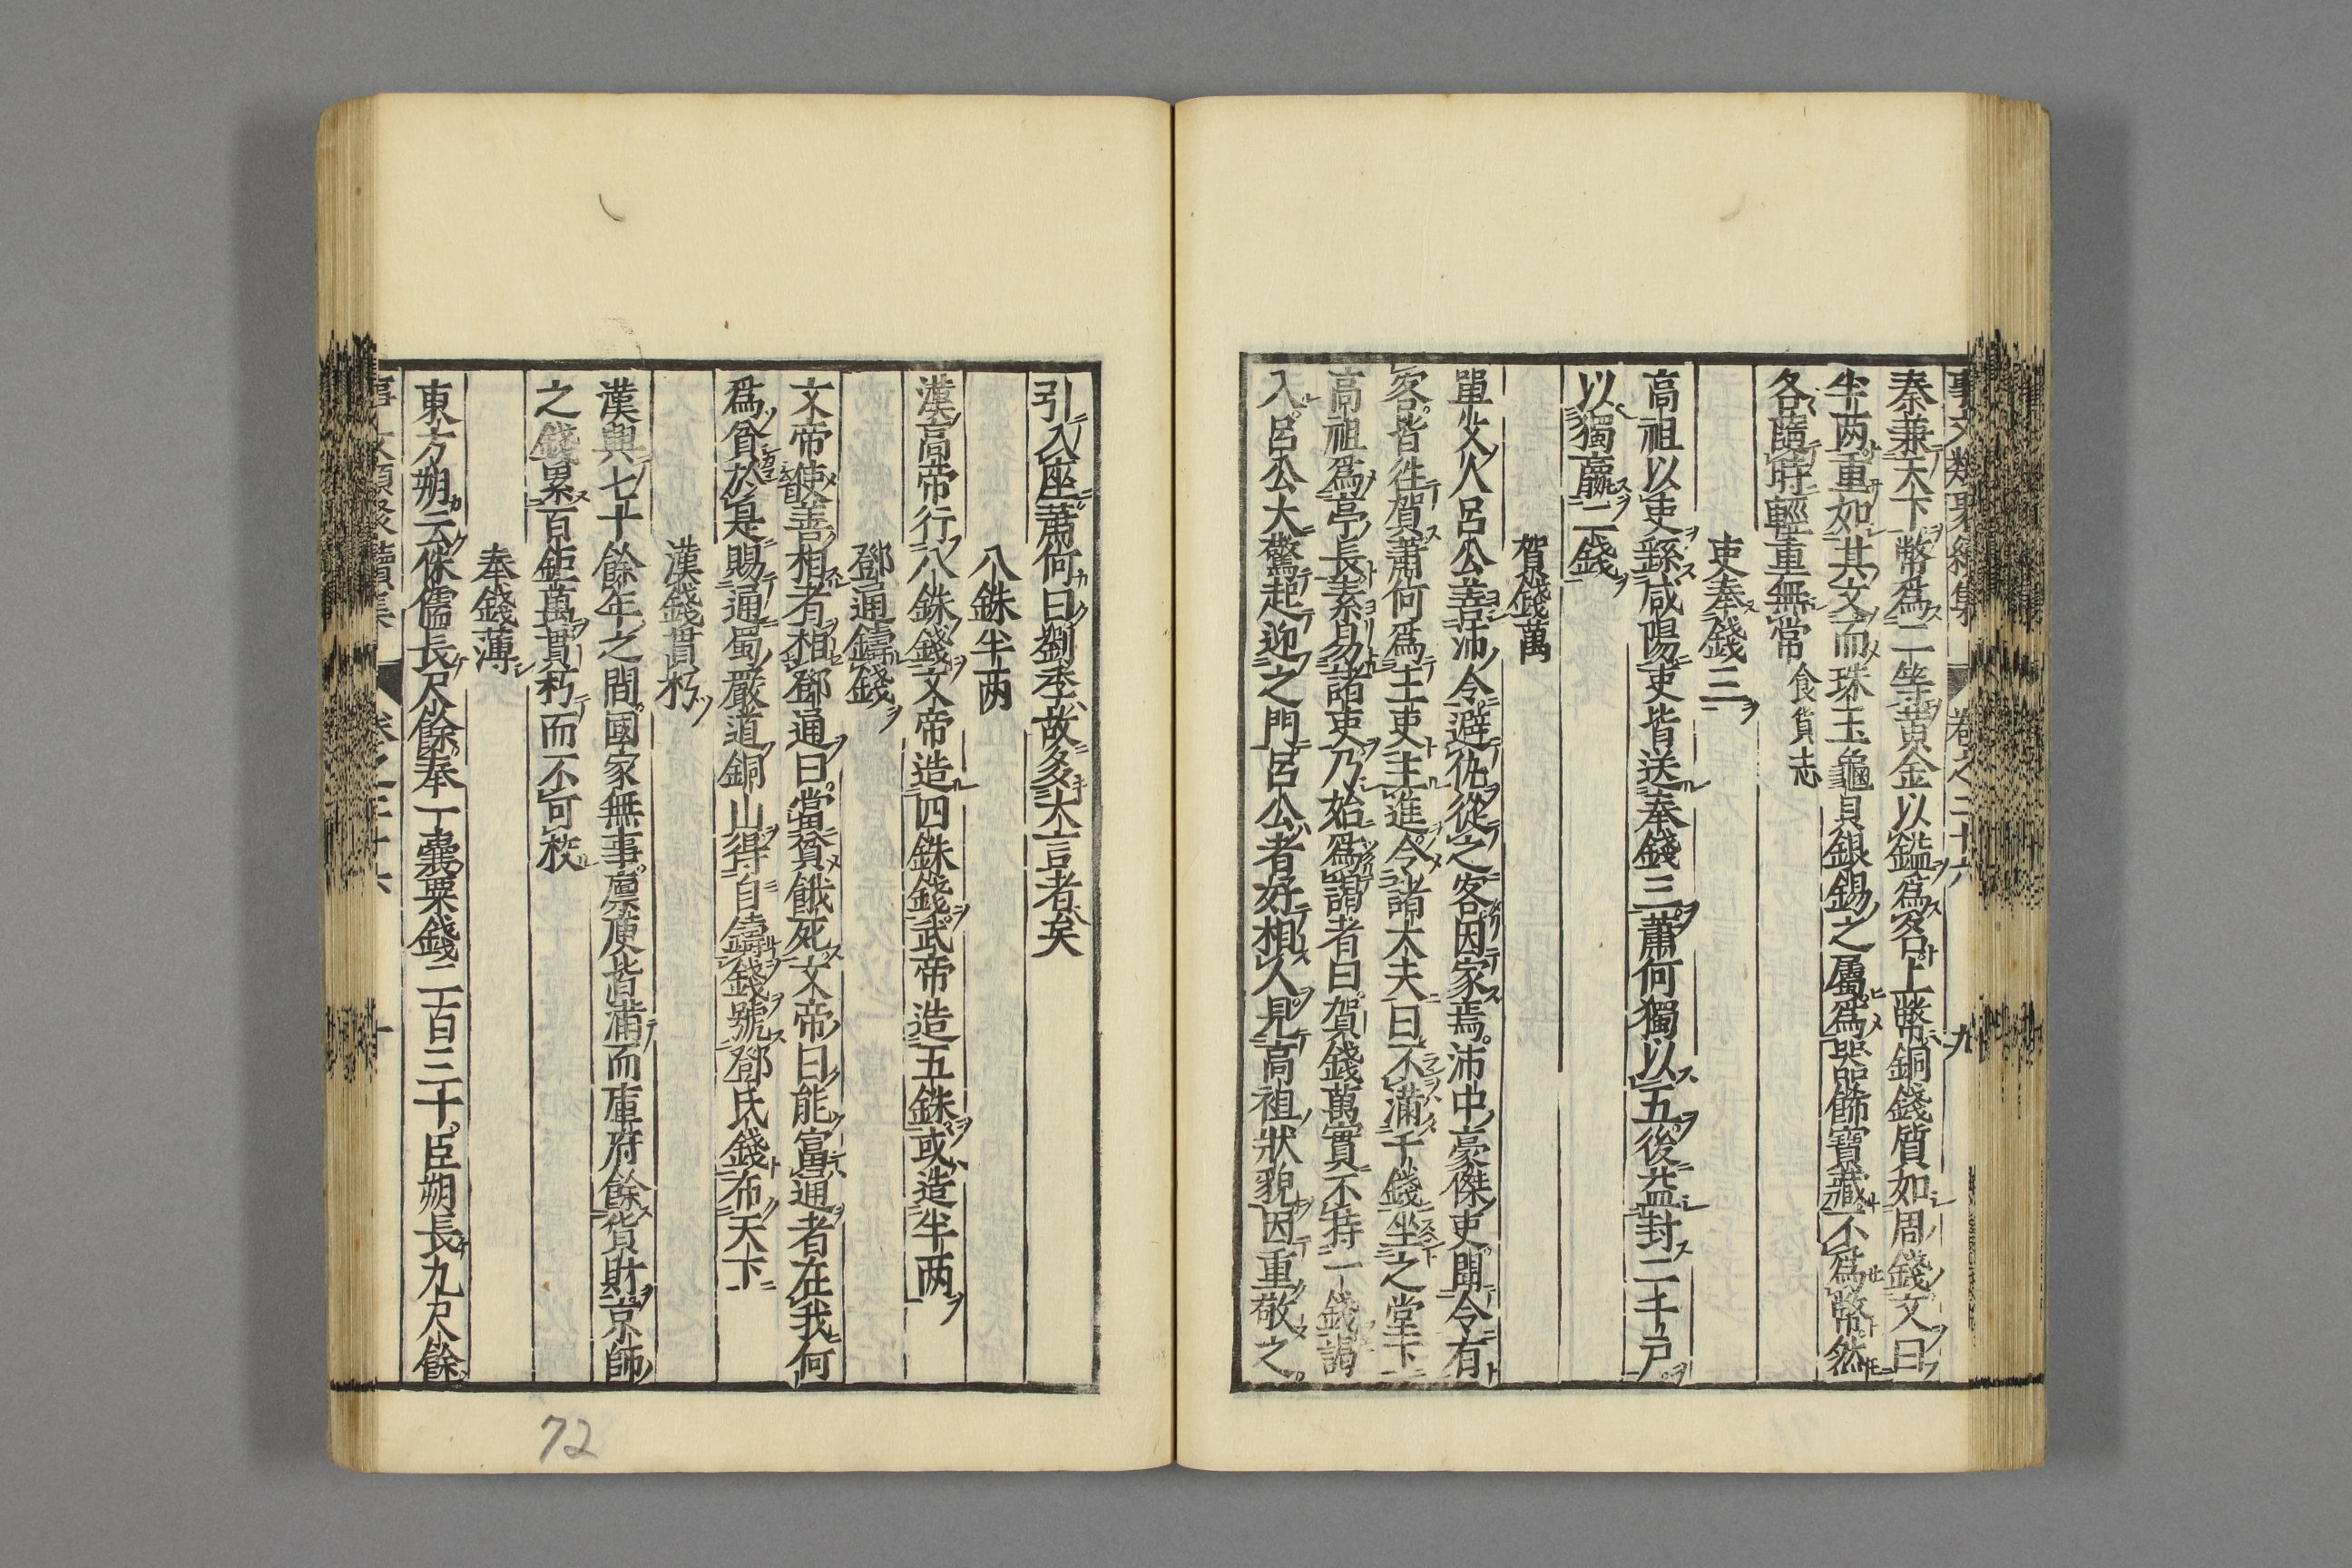 事文類聚續集 卷之二十六 九
秦兼天下幣爲二等黃金以鎰爲名上幣銅錢質如周錢文曰
半两重如其文而珠玉龜貝銀錫之屬爲器飾寶藏不爲幣然
各隨時輕重無常 食貨志
吏奉錢三
高祖以吏繇咸陽吏皆送奉錢三蕭何獨以五後益封二千戸
以獨贏二錢
賀錢萬
單父人呂公善沛令避仇從之客因家焉沛中豪傑吏聞令有
客皆徃賀蕭何爲主吏主進令諸大夫曰不滿千錢坐之堂下
高祖爲亭長素易諸吏乃始爲謁者曰賀錢萬實不持一錢謁
入呂公大驚起迎之門呂公者好相人見高祖狀貌因重敬之
引入座蕭何曰劉季故多大言者矣
八銖半两
漢高帝行八銖錢文帝造四銖錢武帝造五銖或造半两
鄧通鑄錢
文帝使善相者相鄧通曰當貧餓死文帝曰能富通者在我何
爲貧於是賜通蜀嚴道銅山得自鑄錢號鄧氏錢布天下
漢錢貫朽
漢興七十餘年之間國家無事廩庾皆滿而庫府餘貨財京師
之錢累百鉅萬貫朽而不可校
奉錢薄
東方朔云侏儒長尺餘奉一囊粟錢二百三十臣朔長九尺餘
事文類聚續集 卷之二十六 十
72